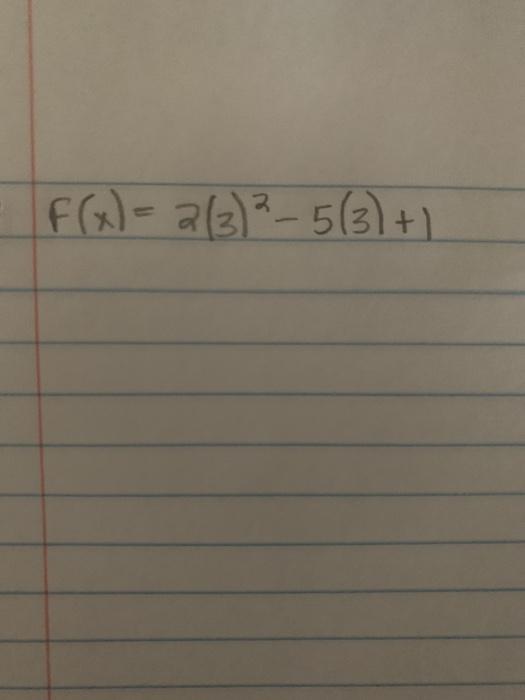 F(x) = 2(3)² - 5(3) + 1